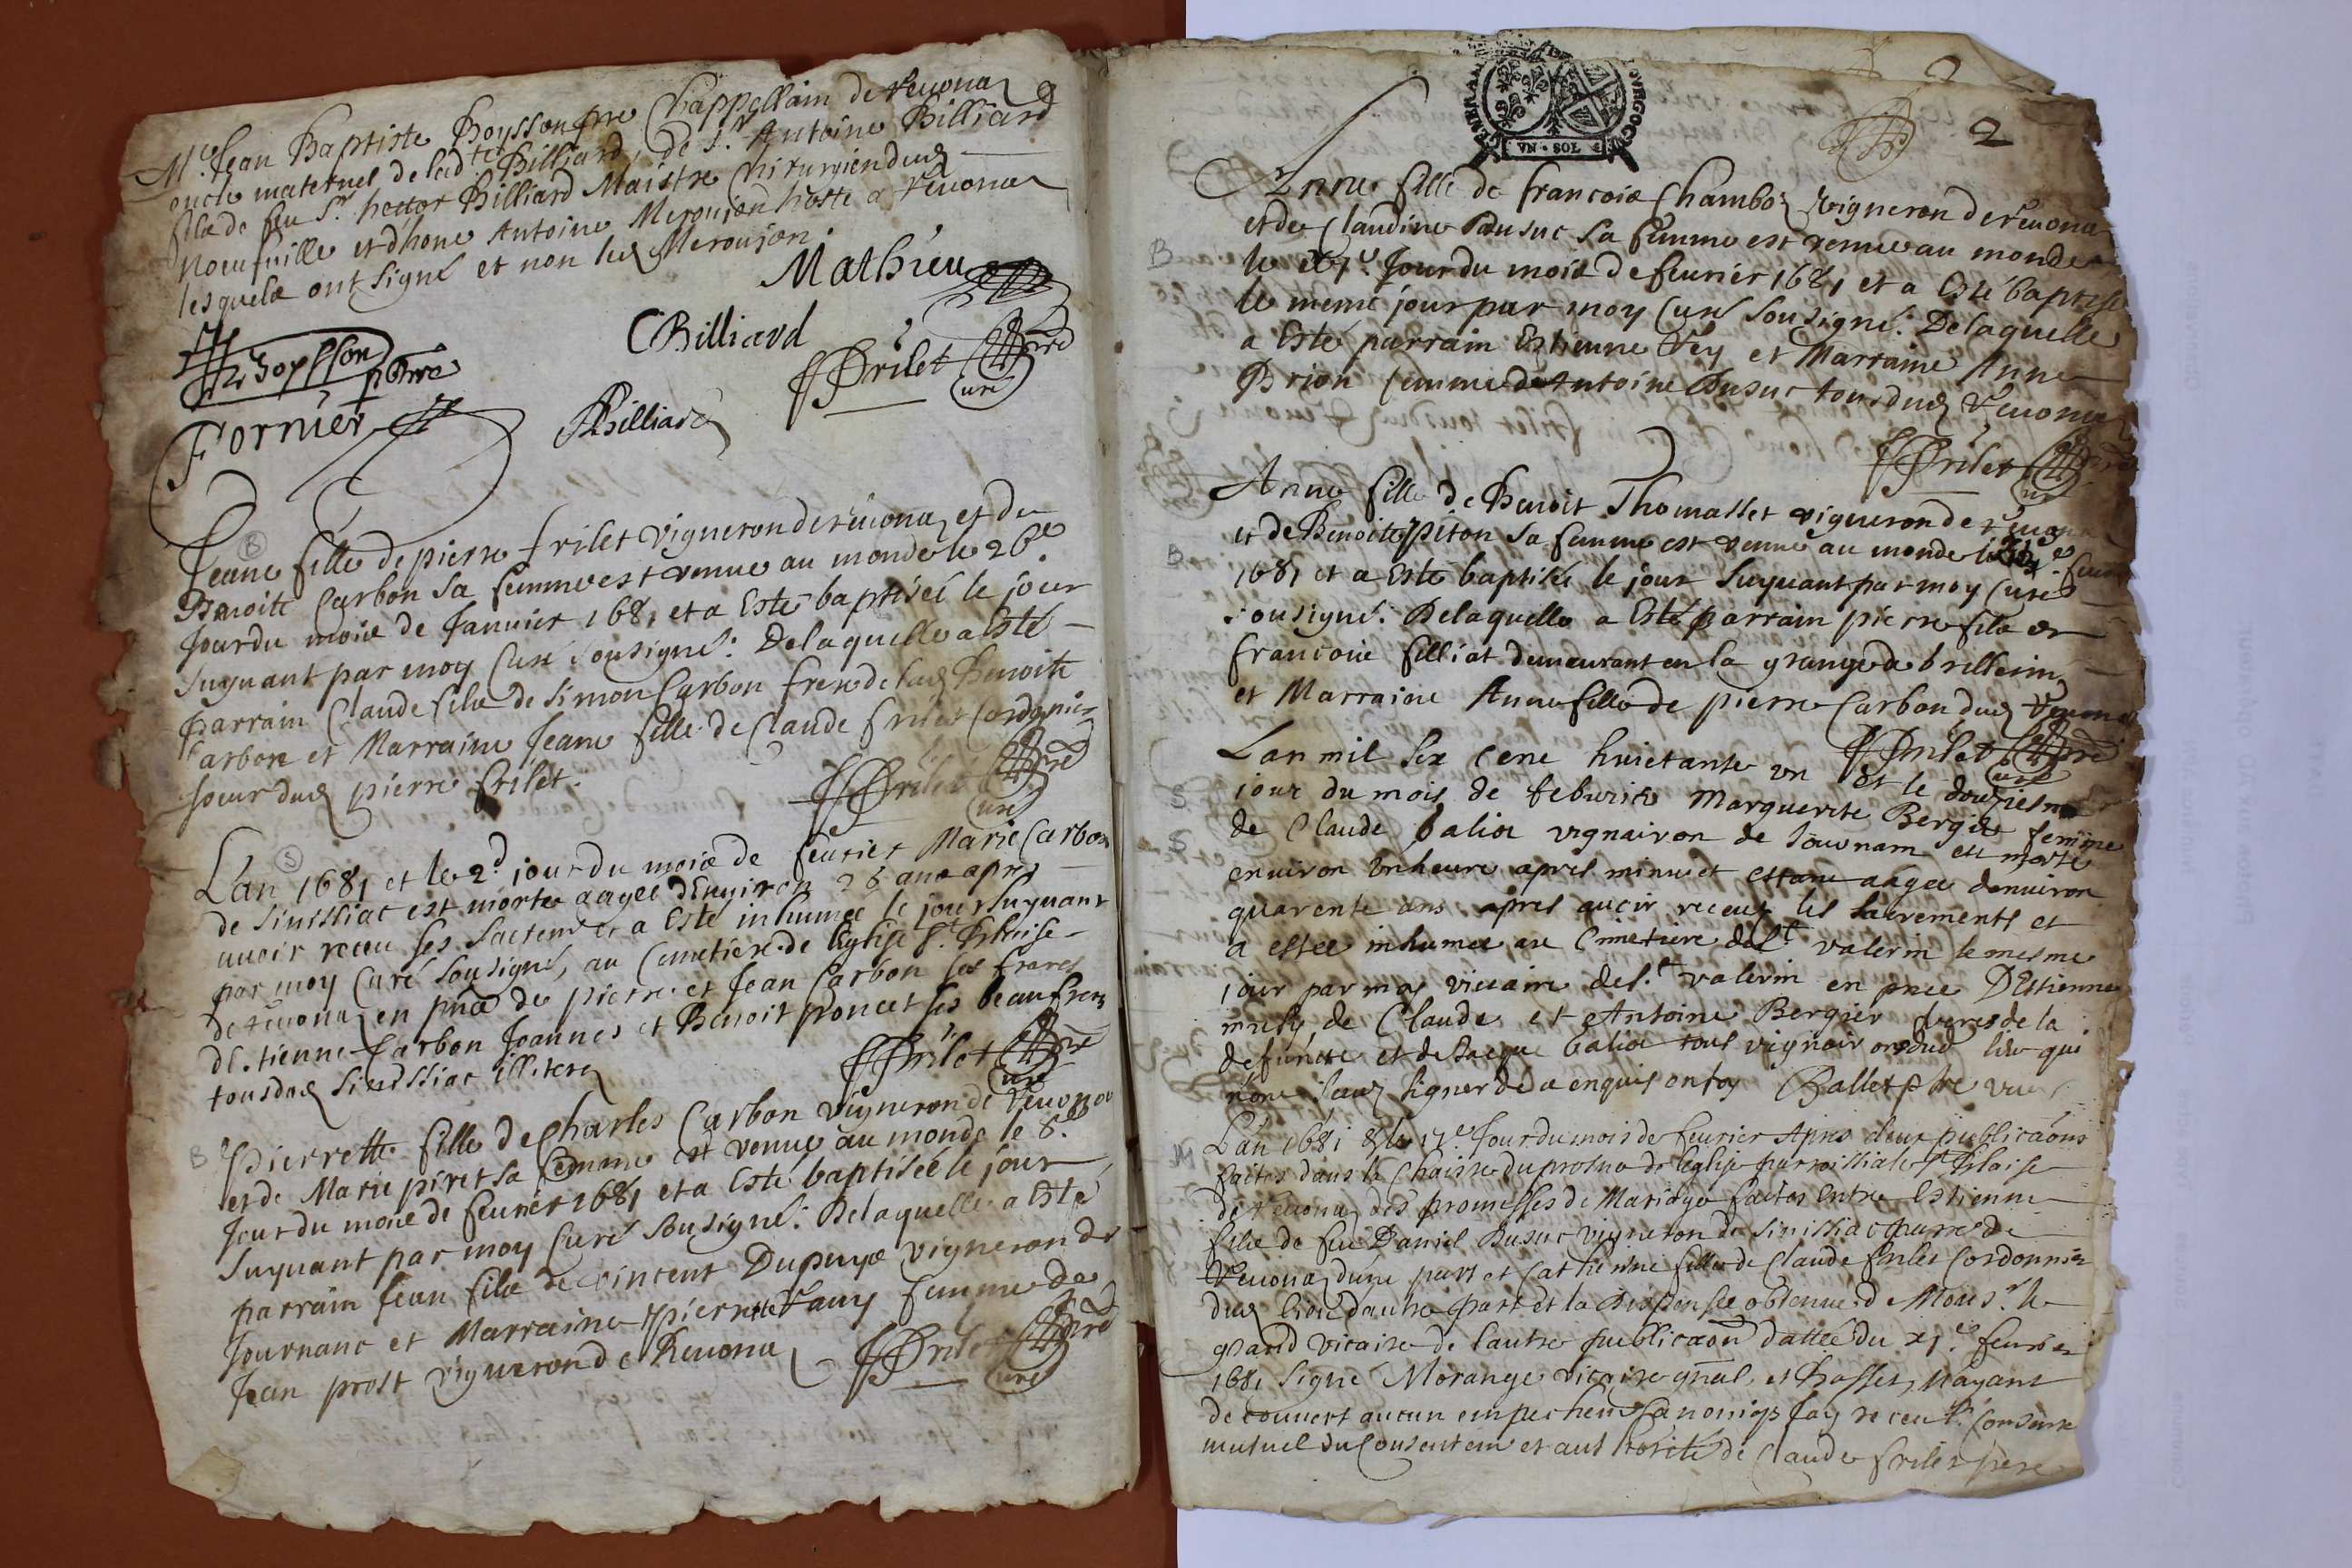 Mre Jean Baptiste Boysson pre Chappellain de Reuona
oncle maternel de ladte Billiard, de Sr Antoine Billiard
filz de feu Sr hector Billiard Maistre Chirurgien dud
Noeufuille et dhone Antoine Meroujon hoste a Reuona
lesquelz ont signé et non led Meroujon.
Mathieu
CBilliard
Boysson pbre
FFrilet pre
Curé
Fornier
Billiard
Jeane fille de pierre frilet vigneron de reuona et de
Benoite Carbon sa femme est venue au monde le 26e
Jour du mois de Januier 1681 et a Esté baptiseé le jour
suyuant par moy Curé sousigné: De laquelle a Esté
parrain Claude filz de Simon Carbon frere de lad Benoite
Carbon et Marraine Jeane fille de Claude frilet Cordonier
soeur dud pierre frilet.
FFrilet pre
Curé
L'an 1681 et le 2d jour du mois de feurier Marie Carbon
de Sinissiac est morte aageé d'Enuiron 28 ans apres
auoir receu ses sacremts et a Esté inhumeé le jour suyuant
par moy Curé sousigné, au Cemetiere de l'Eglise St Blaise
de reuona en pnce de pierre et Jean Carbon ses freres
d'Estienne Carbon Joannes et Benoit poncet ses beaufreres
tous dud Sinissiac illiteres
FFrilet pre
Curé
B
Pierrette fille de Charles Carbon vigneron de Reuona
et de Marie piret sa femme est venue au monde le 8e
Jour du mois de feurier 1681 et a Esté baptiseé le jour
suyuant par moy Curé sousigné: De laquelle a Esté
parrain Jean filz de vincent Dupuys vigneron de
Journanc et Marraine pierrette femme de
Jean prost vigneron de Reuona
FFrilet pre
Curé
VN SOL
2
Anne fille de francois Chambo vigneron de reuona
et de Claudine Dusuc sa femme est venue au monde
B
le Jour du mois de feurier 1681 et a Esté baptisé
le meme jour par moy Curé sousigné: De laquelle
a Esté parrain Estienne Fey et Marraine Anne
Brion femme de Antoine Dusuc tous dud Reuona
FFrilet pre
Curé
Anne fille de Benoit Thomasset vigneron de reuona
et de Benoite piton sa femme est venue au monde le feur
B
1681 et a Esté baptiseé le jour suyuant par moy Curé
sousigné. De laquelle a Esté parrain pierre filz de
francois filliat demeurant en la grange de brillerin
et Marraine Anne fille de pierre Carbon dud Reuona
FFrilet pre
Curé
Lan mil six cent huictante vn et le douziesme
S
jour du mois de feburier Marguerite Bergier femme
de Claude balioz vignairon de Jouvnam est morte
S
enuiron vn heure apres minuict estant aagee denuiron
quarente ans apres auoir receuz les sacrements et
a estee inhumee au Cimetiere de St valerin le mesme
jour par moy viccaire de St valerin en pnce D'Estienne
mury, de Claude et Antoine Bergier freres de la
defuncte et de Jacque balioz tous vignairons dud lieu qui
nont sceu signer de ce enquis en foy Ballet pbre vic
L'an 1681 & le 17e Jour du mois de feurier Apres deux publicaons
M
faites dans la Chaisre du prosne de l'eglise parroissiale St Blaise
de reuona des promesses de Mariage faites Entre Estienne
filz de feu Daniel Dusuc vigneron de Sinissiac parre de
Reuona dune part et Catherine fille de Claude frilet Cordonnier
dud lieu d'autre part et la Dispense obtenue de Monsr le
grand vicaire de l'autre publicaon datteé du xje feurier
1681 Signé Morange vicaire gnal, et Basset, N'ayant
decouvert aucun empechemt Canoniqz Jay receu le Consentemt
mutuel du Consentem et authorité de Claude frilet pere